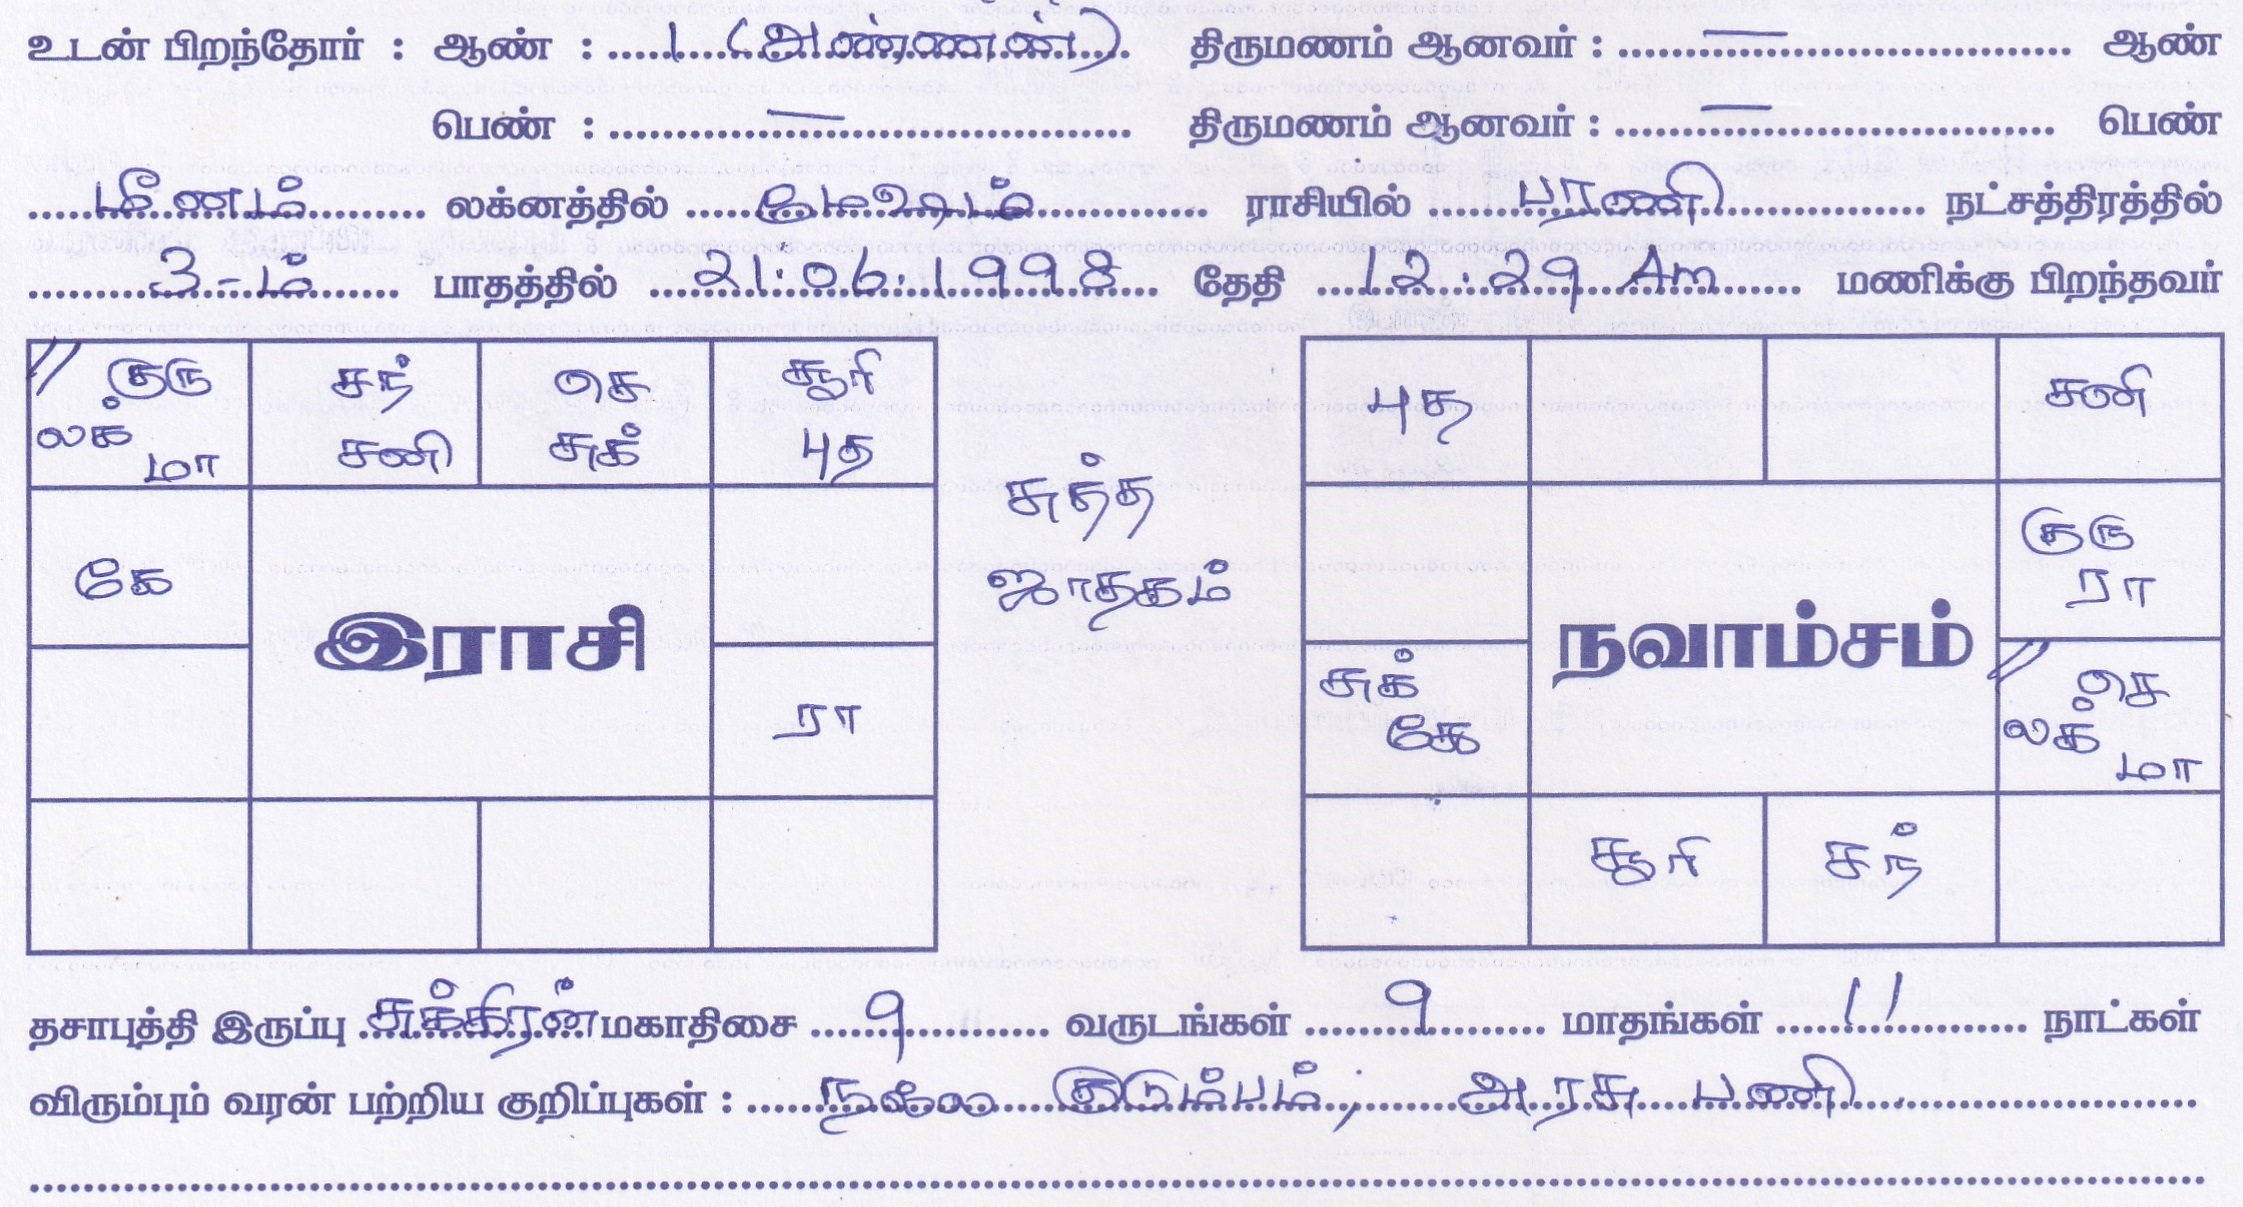 உடன் பிறந்தோர் : ஆண் : 1 (அண்ணன்) திருமணம் ஆனவர் : — ஆண்
பெண் : — திருமணம் ஆனவர் : — பெண்
மீனம் லக்னத்தில் மேஷம் ராசியில் பரணி நட்சத்திரத்தில்
3-ம் பாதத்தில் 21.06.1998 தேதி 12.29 Am மணிக்கு பிறந்தவர்
// குரு சந் செ சூரி
லக் மா சனி சுக் புத
கே
இராசி
ரா
சுத்த
ஜாதகம்
புத சனி
குரு
ரா
நவாம்சம்
சுக் // செ
கே லக் மா
சூரி சந்
தசாபுத்தி இருப்பு சுக்கிரன் மகாதிசை 9 வருடங்கள் 9 மாதங்கள் 11 நாட்கள்
விரும்பும் வரன் பற்றிய குறிப்புகள் : நல்ல குடும்பம், அரசு பணி.